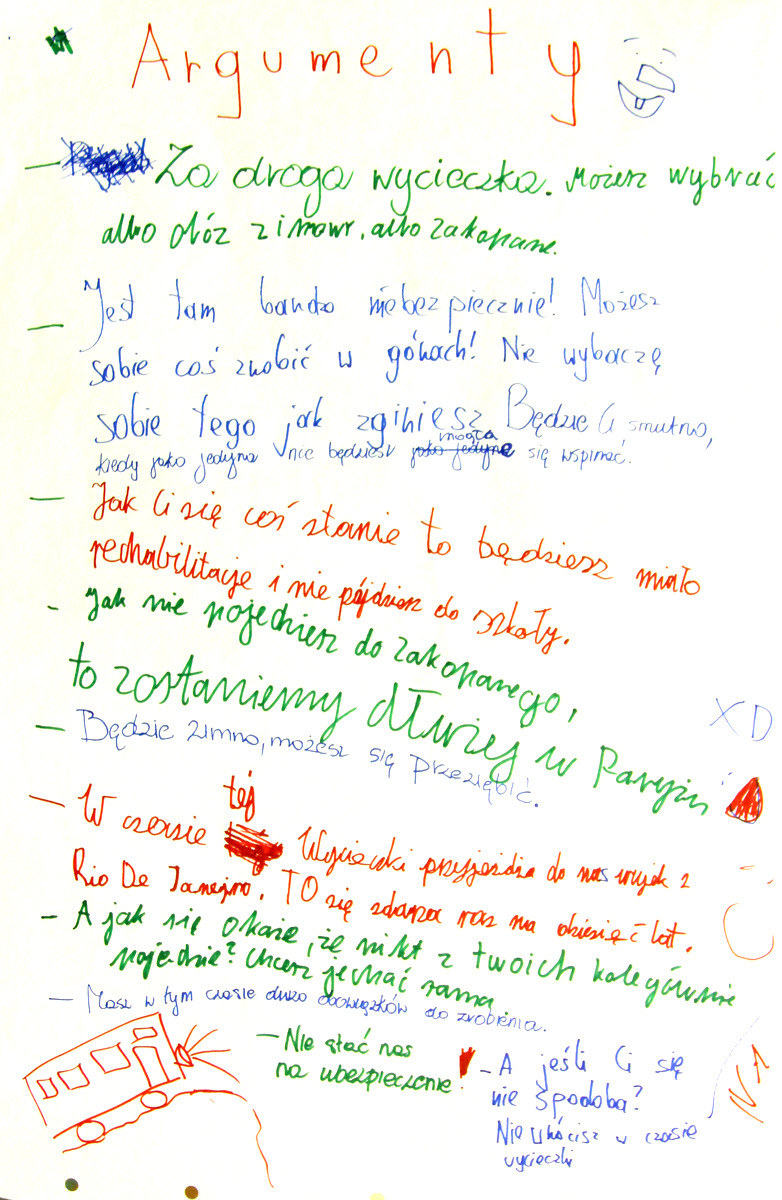 Argumenty
– Za droga wycieczka. Możesz wybrać
albo obóz zimowy, albo Zakopane.
– Jest tam bardzo niebezpiecznie! Możesz
sobie coś zrobić w górach! Nie wybaczę
sobie tego jak zginiesz Będzie Ci smutno,
mogła
kiedy jako jedyna nie będziesz się wspinać.
– Jak Ci się coś stanie to będziesz miało
rechabilitacje i nie pójdziesz do szkoły.
– Jak nie pojedziesz do Zakopanego,
to zostaniemy dłużej w Paryżu
XD
– Będzie zimno, możesz się przeziębić.
tej
– W czasie Wycieczki przyjeżdża do nas wujek z
Rio De Janejro. TO się zdarza raz na dziesięć lat.
– A jak się okaże, że nikt z twoich kolegów nie
pojedzie? Chcesz jechać sama
– Masz w tym czasie dużo obowiązków do zrobienia.
– Nie stać nas
na ubezpieczenie!
– A jeśli Ci się
nie spodoba?
Nie wrócisz w czasie
wycieczki